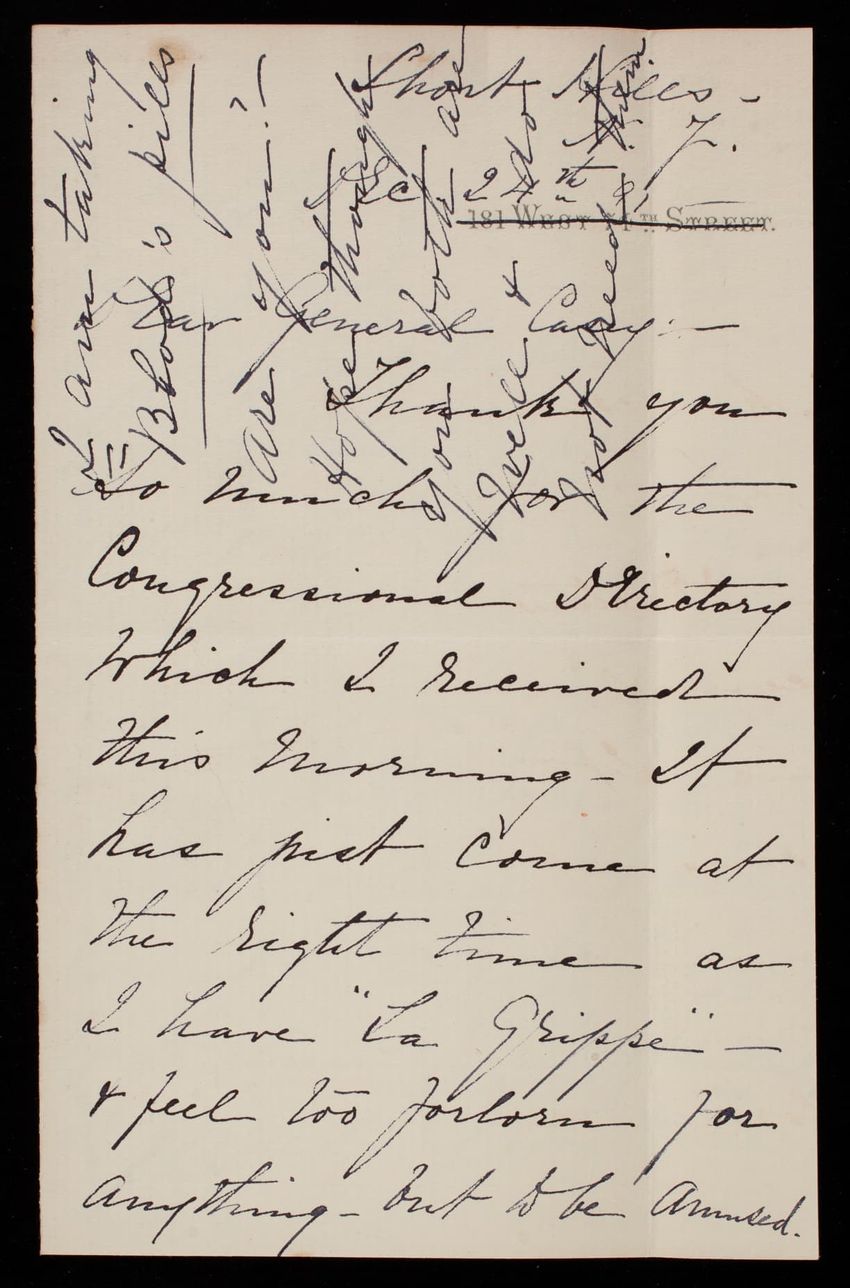 Short Hills -
N. J.
Dec 24th 91
181 WEST 51TH STREET.
Dear General Casey: -
Thank you
so much for the
Congressional Directory
which I received
this morning - It
has just come at
the right time as
I have "La Grippe" -
& feel too forlorn for
anything - but to be amused.
I am taking
Blood's pills
Are you?!
Hope though
you both are
well & do
not need